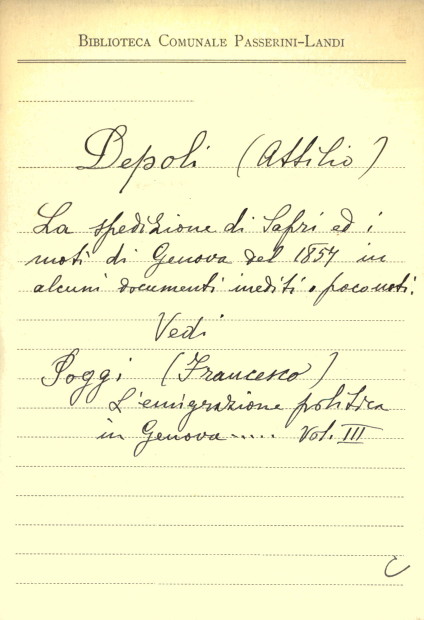 BIBLIOTECA COMUNALE PASSERINI-LANDI
Depoli (Attilio)
La spedizione di Sapri ed i
moti di Genova del 1857 in
alcuni documenti inediti o poco noti.
Vedi
Poggi (Francesco)
L'emigrazione politica
in Genova..... Vol. III